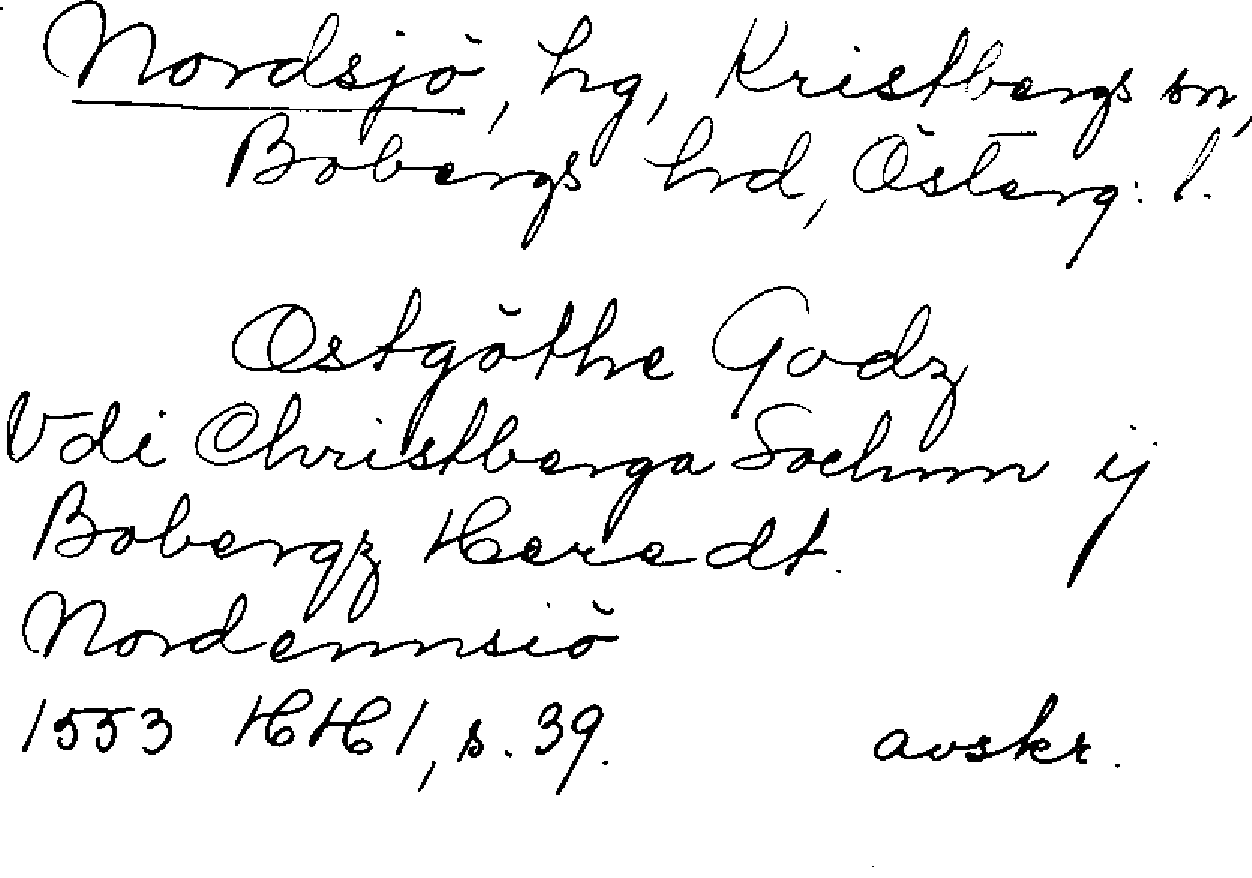 Nordsjö, hg, Kristbergs sn,
Bobergs hrd, Österg: l.
Östgöthe Godz
Vdi Christberga Sochnn ij
Bobergz Heredt.
Nordennsiö
1553 HH 1, s. 39. avskr.